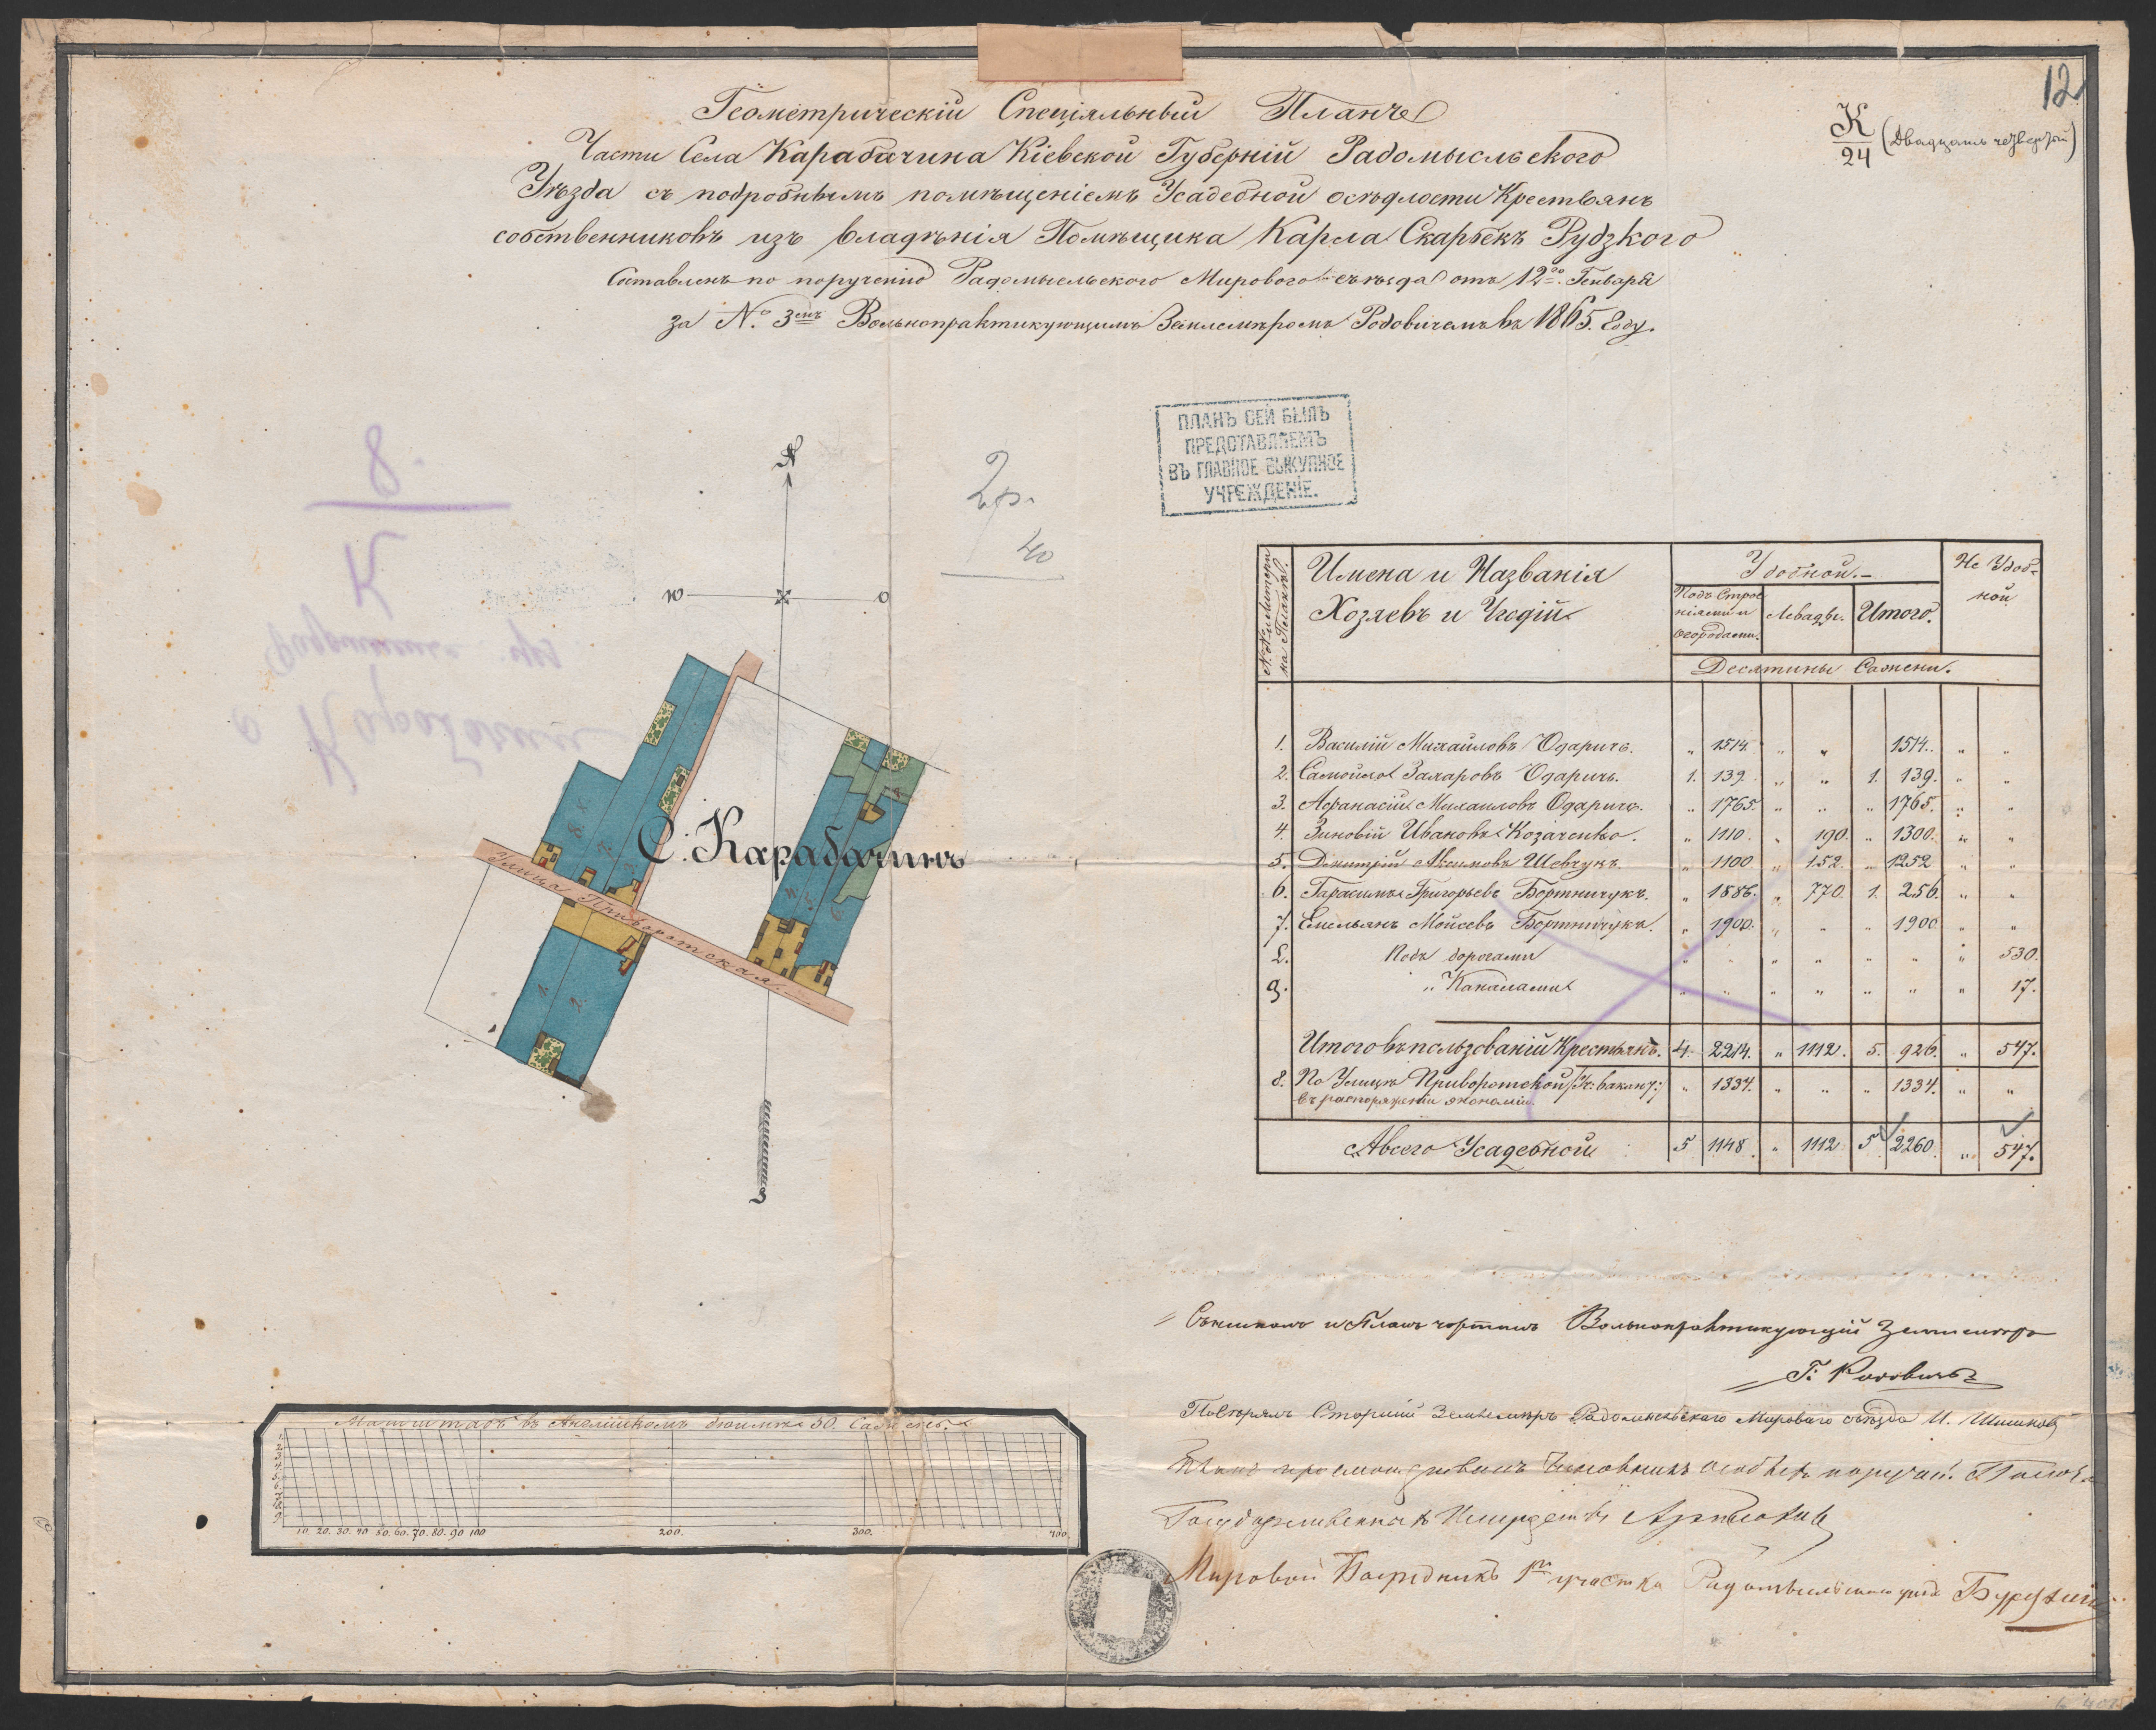 12
К
24
(Двадцать четвертый)
Геометрическій Спеціяльный Планъ
Части Села Карабачина Кіевской Губерній Радомысльского
Уѣзда съ подробнымъ помѣщеніемъ Усадебной осѣдлости Крестьянъ
собственниковъ изъ владѣнія Помѣщика Карла Скарбекъ Рудзкого
Составленъ по порученію Радомысльского Мирового съѣзда отъ 12го Генваря
за №. 3емъ Вольнопрактикующимъ Землемѣромъ Родовичемъ въ 1865. Году.
ПЛАНЪ СЕЙ БЫЛЪ
ПРЕДСТАВЛЯЕМЪ
ВЪ ГЛАВНОЕ ВЫКУПНОЕ
УЧРЕЖДЕНІЕ.
8
К
2р.
40
N
W O
С. Карабачинъ
Улица Приворотская
S
№№ и Литеры на Планѣ. Имена и Названія Хозяевъ и Угодій Удобной. Не Удобной
Подъ Строеніями и огородами. Левады. Итого.
Десятины Сажени.
1. Василій Михайловъ Одаричъ. " 1514. " " 1514. " "
2. Самойло Захаровъ Одаричъ. 1. 139. " " 1. 139. " "
3. Афанасій Михаиловъ Одаричъ. " 1765. " " " 1765. " "
4. Зиновій Ивановъ Козаченко. " 1110. " 190. " 1300. " "
5. Дмитрій Максимовъ Шевчукъ. " 1100 " 152. " 1252 " "
6. Гарасимъ Григорьевъ Бортничукъ. " 1886. " 770. 1. 256. " "
7. Емельянъ Мойсеевъ Бортничукъ. " 1900. " " " 1900 " "
Подъ дорогами " " " " " " " 530.
" Каналами " " " " " " " 17.
Итого въ пользованій Крестьянъ. 4. 2214. " 1112. 5. 926. " 547.
8. По Улицѣ Приворотской /:К: вакант:/ " 1334. " " " 1334. " "
въ распоряженіи экономіи.
А всего Усадебной 5 1148. " 1112 5 2260. " 547.
Съемкомъ и Планъ чертилъ Вольнопрактикующій Землемѣръ
Г: Родовичъ
Повѣрялъ Старшій Землемѣръ Радомысльскаго Мироваго съѣзда И. Шишковъ
Планъ
Государственныхъ Имуществъ
Мировой Посредникъ 1го участка Радомысльскаго уѣзда
Масштабъ въ Англійскомъ дюймѣ 50. Саженъ.
10. 20. 30. 40 50. 60. 70. 80. 90 100 200. 300. 400